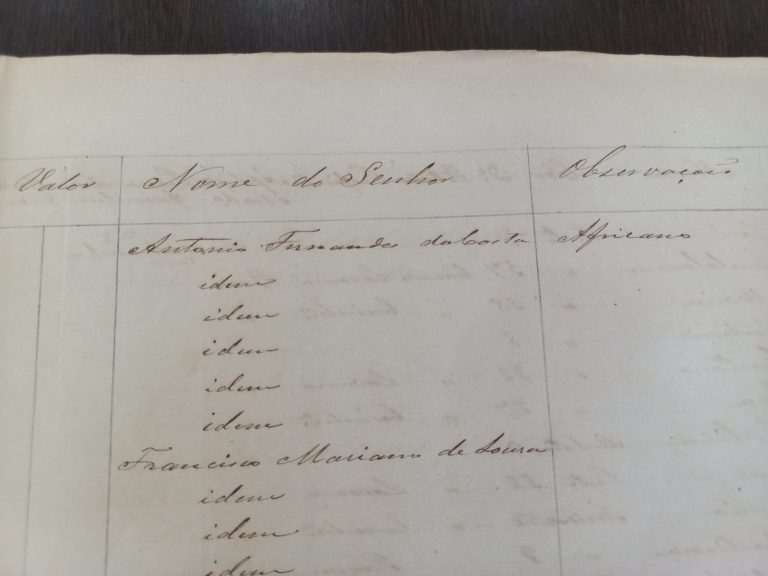 Valor Nome do Senhor Observações
Antonio Fernandes da Costa Africano
idem
idem
idem
idem
idem
Francisco Mariano de Sousa
idem
idem
idem